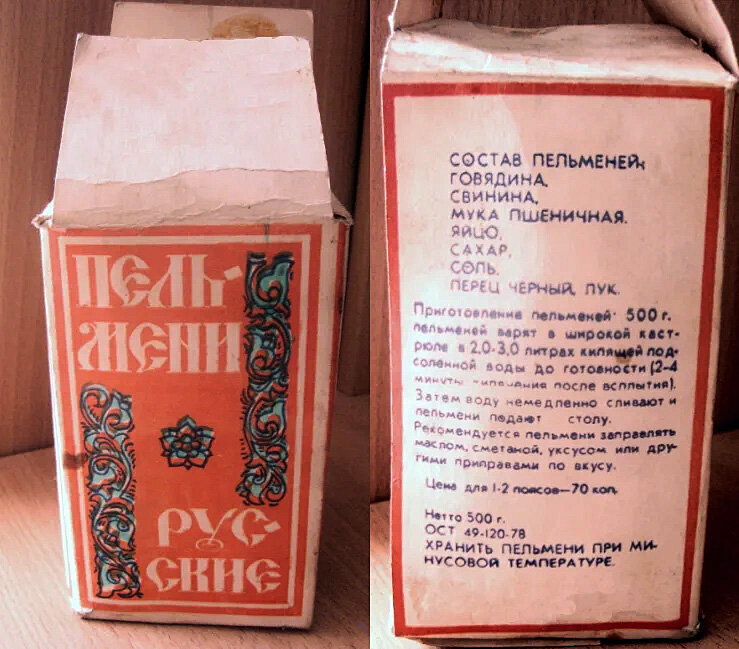 ПЕЛЬ-
МЕНИ
РУС-
СКИЕ
СОСТАВ ПЕЛЬМЕНЕЙ:
ГОВЯДИНА,
СВИНИНА,
МУКА ПШЕНИЧНАЯ.
ЯЙЦО,
САХАР,
СОЛЬ,
ПЕРЕЦ ЧЕРНЫЙ, ЛУК.
Приготовление пельменей: 500 г.
пельменей варят в широкой каст-
рюле в 2,0-3,0 литрах кипящей под-
соленной воды до готовности (2-4
минуты кипячения после всплытия).
Затем воду немедленно сливают и
пельмени подают столу.
Рекомендуется пельмени заправлять
маслом, сметаной, уксусом или дру-
гими приправами по вкусу.
Цена для 1-2 поясов—70 коп.
Нетто 500 г.
ОСТ 49-120-78
ХРАНИТЬ ПЕЛЬМЕНИ ПРИ МИ-
НУСОВОЙ ТЕМПЕРАТУРЕ.